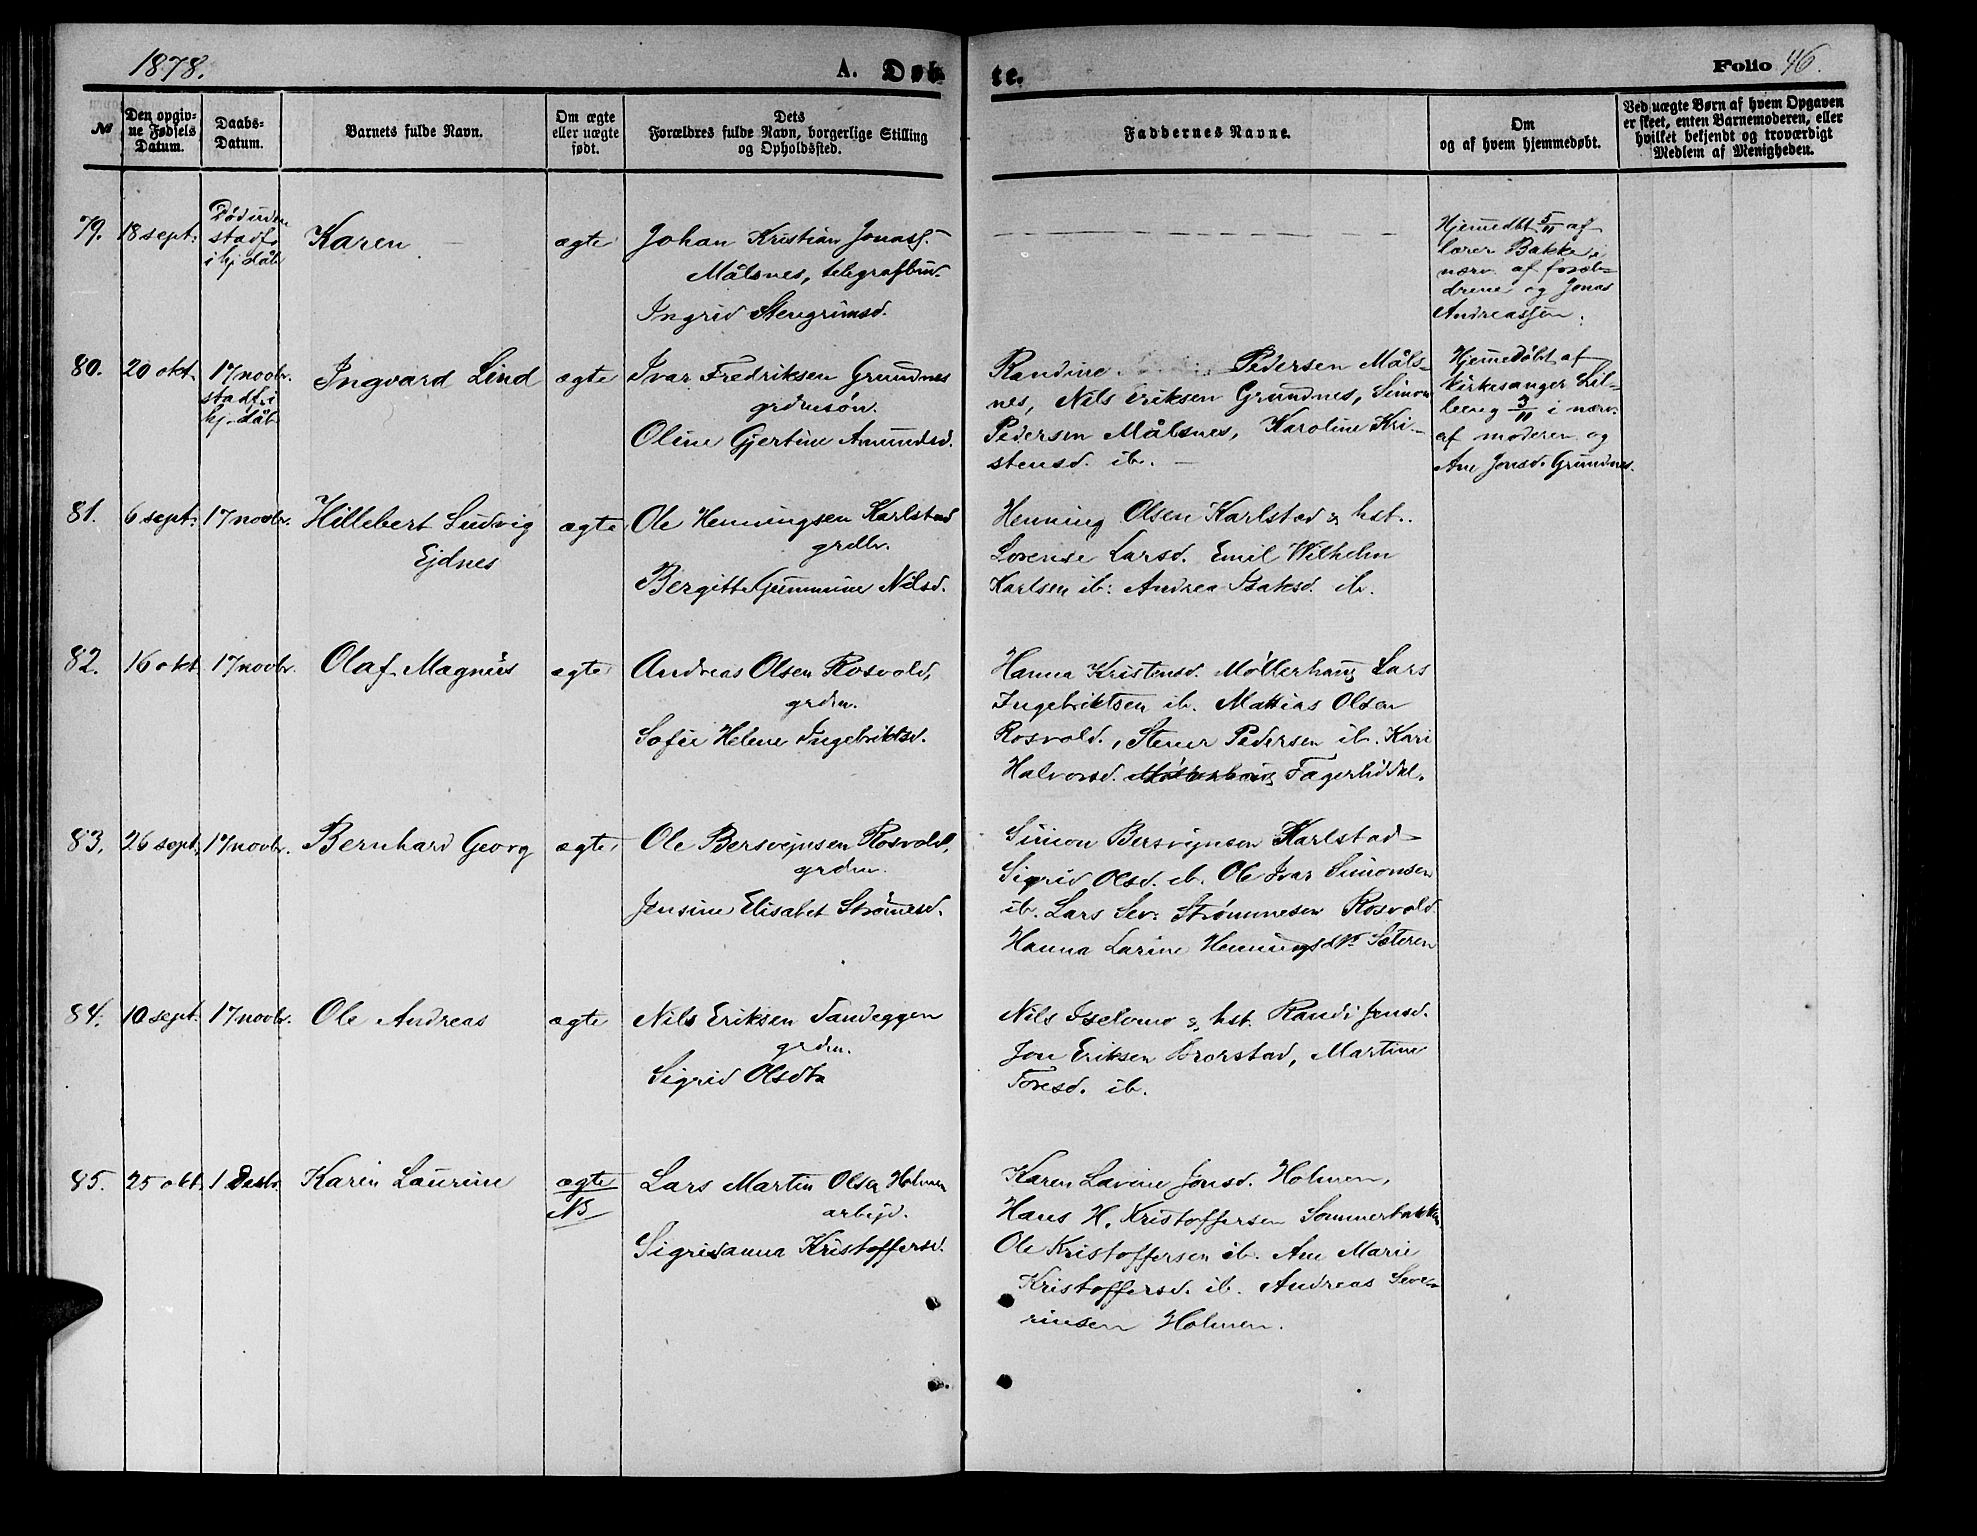 1878.
A. Døb
te.
Folio 46.
№
Den opgiv-
ne Fødsels
Datum.
Daabs-
Datum.
Barnets fulde Navn.
Om ægte
eller uægte
født.
Dets
Forældres fulde Navn, borgerlige Stilling
og Opholdssted.
Faddernes Navne.
Om
og af hvem hjemmedøbt.
Ved uægte Børn af hvem Opgaven
er skeet, enten Barnemoderen, eller
hvilket bekjendt og troværdigt
Medlem af Menigheden.
79. 18 sept. Død uden
stadf.
i hj. dåb
Karen
ægte
Johan Kristian Jonass.
Målsnes, telegrafbud.
Ingrid Stengrimsd.
Hjemmedbt 5/11 af
lærer Bakke i
nærv. af foræl-
drene og Jonas
Andreassen.
80. 20 okt. 17 novbr.
stadf. i
hj. dåb
Ingvard Lind
ægte
Ivar Fredriksen Grundnes
grdmsøn.
Oline Gjertine Amundsd.
Randine Pedersen Måls-
nes, Nils Eriksen Grundnes, Simon
Pedersen Målsnes, Karoline Kri-
stensd. ib.
Hjemmedøbt af
kirkesanger Lil-
leeng 3/11 i nærv.
af moderen og
Ane Jonsd. Grundnes.
81. 6 sept. 17 novbr. Hillebert Ludvig
Ejdnes
ægte
Ole Henningsen Karlstad
grdbr.
Bergitte Gunnmine Nilsd.
Henning Olsen Karlstad & hst.
Lorense Larsd. Emil Wilhelm
Karlsen ib. Andrea Isaksd. ib.
82. 16 okt. 17 novbr. Olaf Magnus ægte
Andreas Olsen Rosvold,
grdm.
Sofie Helene Ingebriktsd.
Hanna Kristensd. Møllerhaug Lars
Ingebriktsen ib. Mattias Olsen
Rosvold., Stener Pedersen ib. Kari
Halvorsd. Møllerhaug Fagerliddal.
83. 26 sept. 17 novbr. Bernhard Georg ægte
Ole Bersvejnsen Rosvold,
grdm.
Jensine Elisabet Strømesd.
Simon Bersvejnsen Karlstad
Sigrid Olsd. ib. Ole Ivar Simonsen
ib. Lars Sev. Strømmesen Rosvold
Hanna Larine Henningsdtr Sæteren
84. 10 sept. 17 novbr. Ole Andreas ægte
Nils Eriksen Tandeggen
grdm.
Sigrid Olsdtr
Nils Iselvmo & hst. Randi Jensd.
Jon Eriksen Brorstad, Martine
Toresd. ib.
85. 25 okt. 1 Decbr. Karin Laurine ægte
NB
Lars Martin Olsen Holmen
arbejd.
Sigridanna Kristoffersd.
Karen Lavine Jonsd. Holmen,
Hans H. Kristoffersen Sommerbakken
Ole Kristoffersen ib. Ane Marie
Kristoffersd. ib. Andreas Seve-
rinsen Holmen.